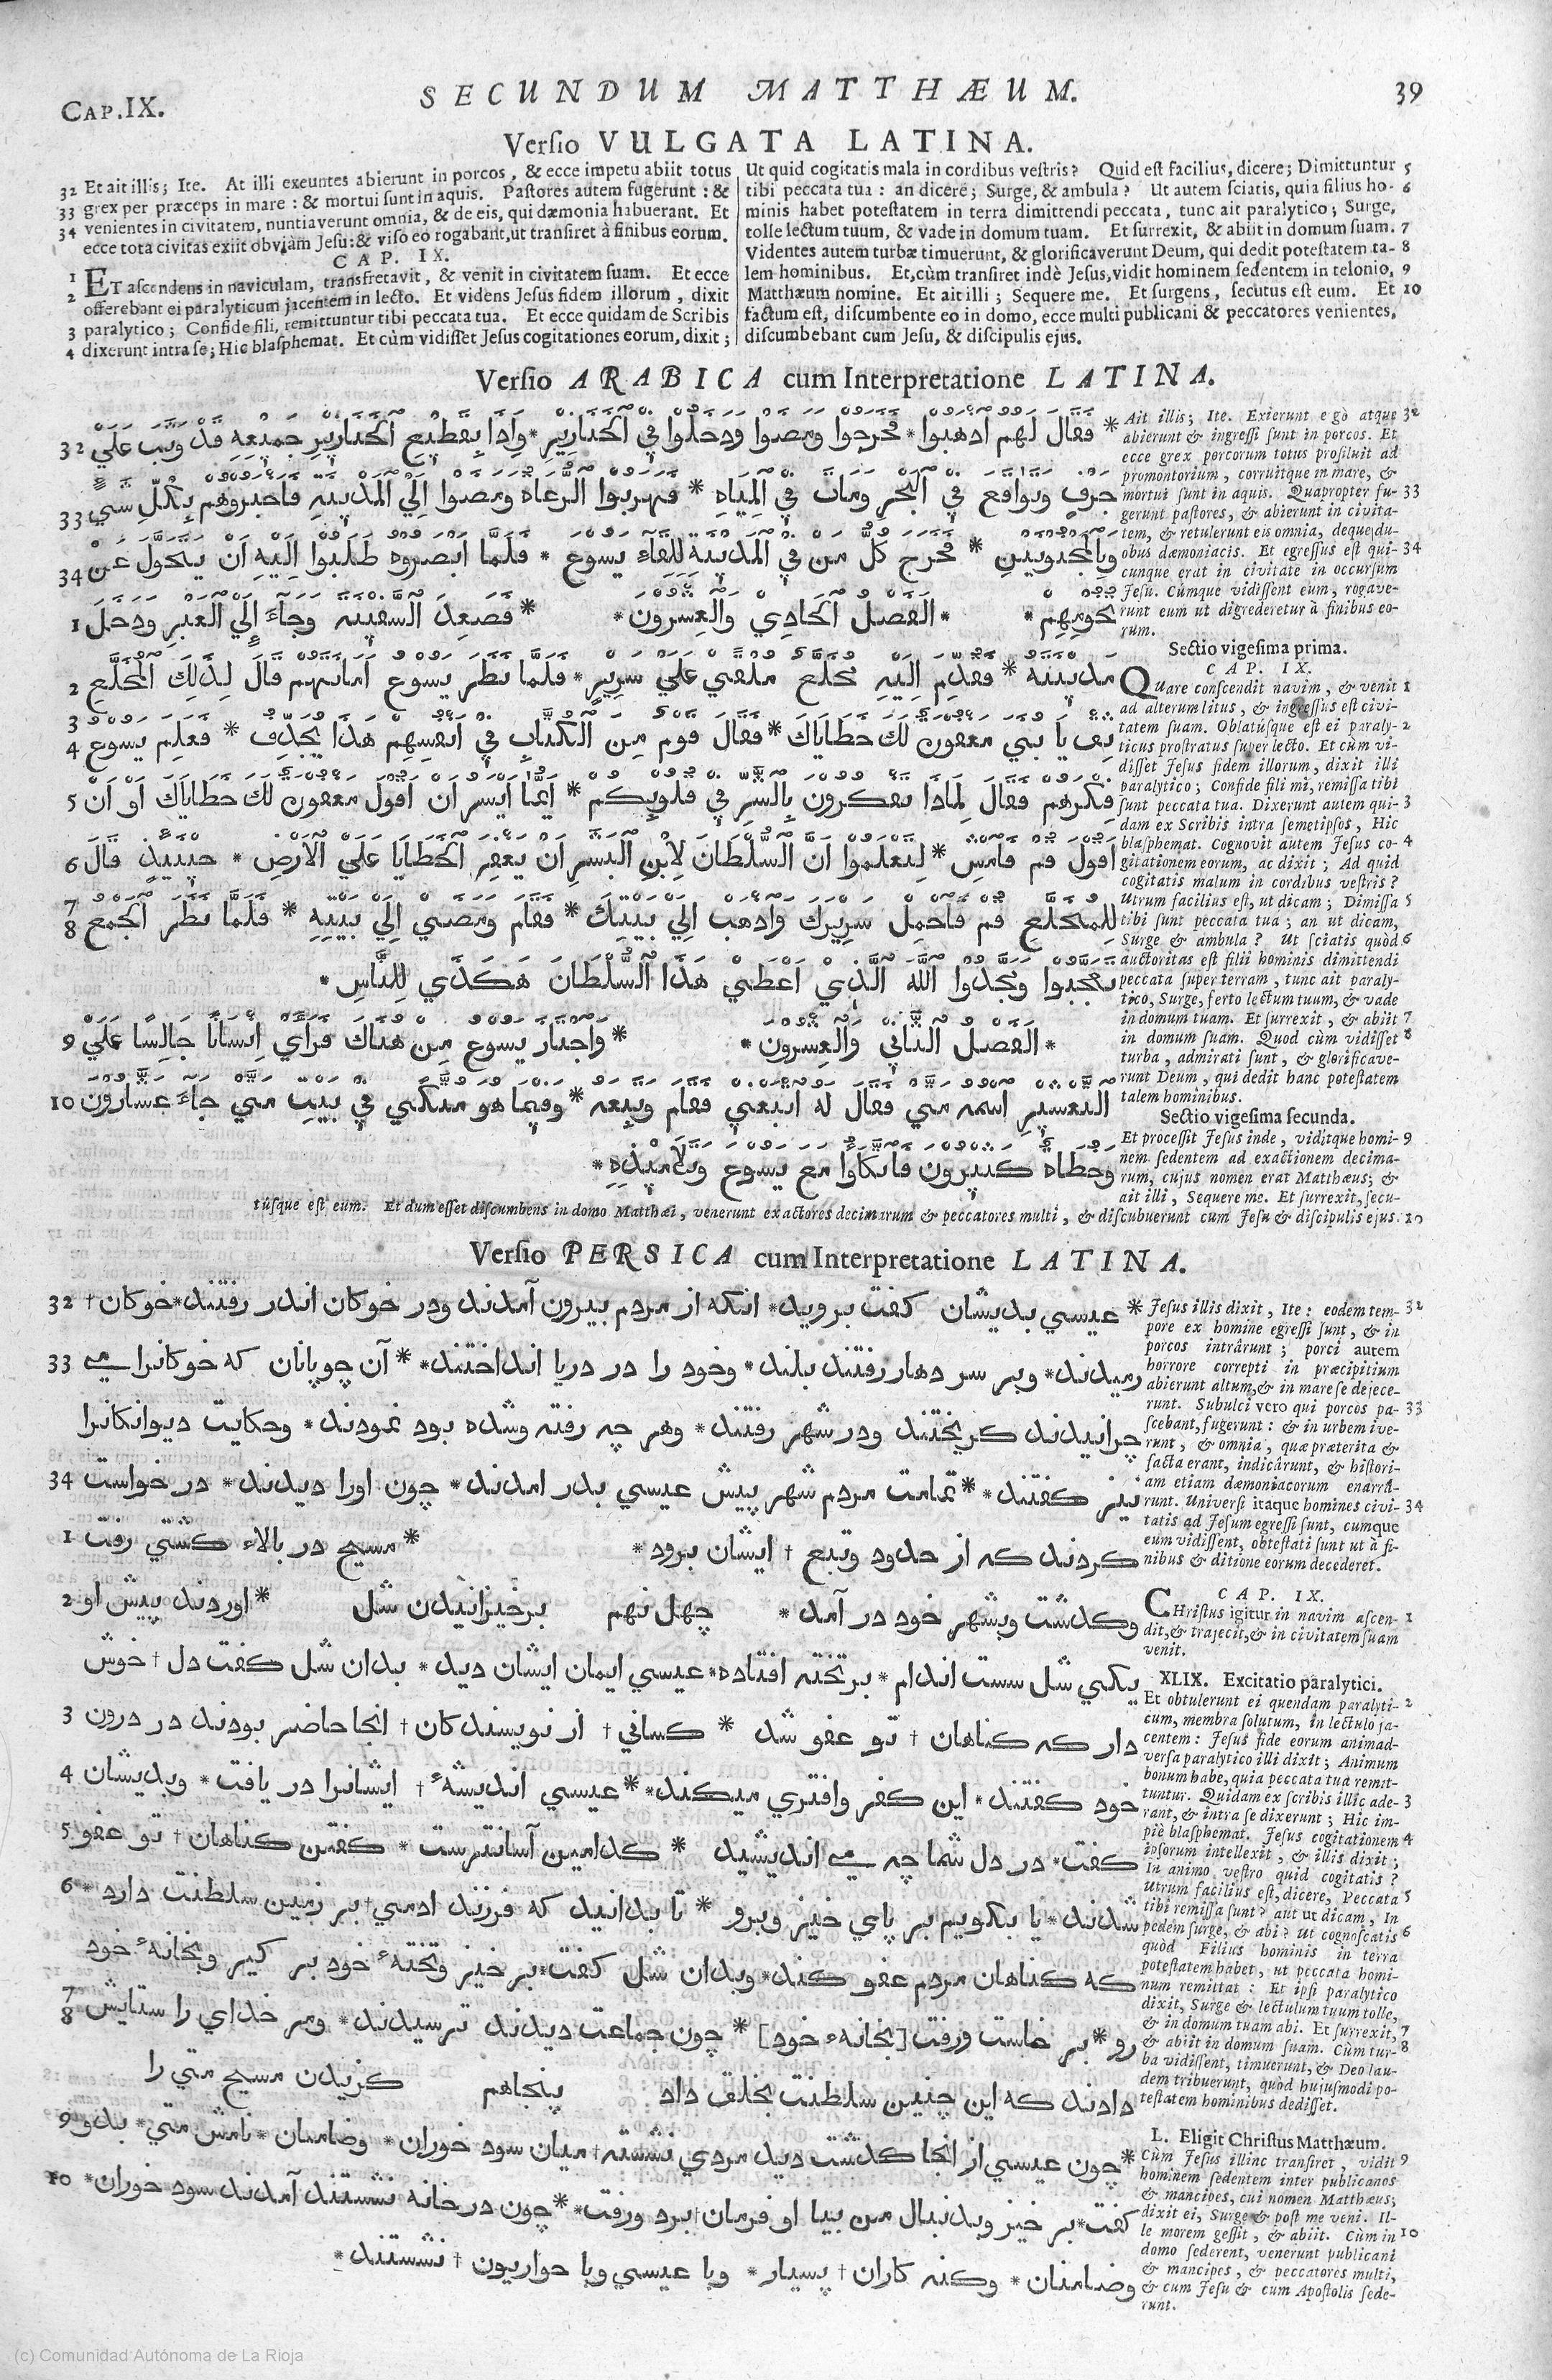 CAP.IX.
SECUNDUM MATTHÆUM.
39
Verſio VULGATA LATINA.
32 Et ait illis; Ite. At illi exeuntes abierunt in porcos, & ecce impetu abiit totus
33 grex per præceps in mare: & mortui ſunt in aquis. Paſtores autem fugerunt: &
34 venientes in civitatem, nuntiaverunt omnia, & de eis, qui dæmonia habuerant. Et
ecce tota civitas exiit obviàm Jeſu: & viſo eo rogabant, ut tranſiret à finibus eorum.
CAP. IX.
1 ET aſcendens in naviculam, transfretavit, & venit in civitatem ſuam. Et ecce
2 offerebant ei paralyticum jacentem in lecto. Et videns Jeſus fidem illorum, dixit
3 paralytico; Confide fili, remittuntur tibi peccata tua. Et ecce quidam de Scribis
4 dixerunt intra ſe; Hic blaſphemat. Et cùm vidiſſet Jeſus cogitationes eorum, dixit;
Ut quid cogitatis mala in cordibus veſtris? Quid eſt facilius, dicere; Dimittuntur 5
tibi peccata tua: an dicere; Surge, & ambula? Ut autem ſciatis, quia filius ho- 6
minis habet poteſtatem in terra dimittendi peccata, tunc ait paralytico; Surge,
tolle lectum tuum, & vade in domum tuam. Et ſurrexit, & abiit in domum ſuam. 7
Videntes autem turbæ timuerunt, & glorificaverunt Deum, qui dedit poteſtatem ta- 8
lem hominibus. Et, cùm tranſiret indè Jeſus, vidit hominem ſedentem in telonio, 9
Matthæum nomine. Et ait illi; Sequere me. Et ſurgens, ſecutus eſt eum. Et 10
factum eſt, diſcumbente eo in domo, ecce multi publicani & peccatores venientes,
diſcumbebant cum Jeſu, & diſcipulis ejus.
Verſio ARABICA cum Interpretatione LATINA.
* فَقَالَ لَهُم اَذهَبُوا * فَخَرَجُوا وَمَضَوْا وَدَخَلُوْا فِي اَلْخَنَازِيرِ * وَاِذَا بِقَطِيْعِ اَلْخَنَازِيرِ جَمِيْعِهِ قَدْ وَثَبَ عَلَيْ 32
جُرُفٍ وَتَوَاقَعَ فِيْ اَلْبَحْرِ وَمَاتَ فِيْ اَلْمِيَاهِ * فَهَرَبُوا اَلرُّعَاةُ وَمَضَوْا اِلَيْ اَلْمَدِينَةِ فَاَخبَرُوهُمْ بِكُلِّ شَيٍ 33
وَبِاَلْمَجنُونِينِ * فَخَرَجَ كُلُّ مَنْ فِيْ اَلْمَدِينَةِ لِلِقَاءِ يَسوع * فَلَمَّا اَبْصَرُوه طَلَبُوْا اِلَيْهِ اَنْ يَتَحَوَّلَ عَنْ 34
تُخُومِهِم * * اَلفَصلُ اَلْحَادِيْ وَالْعِشرُون * * فَصَعِدَ اَلْسَّفِينَه وَجَآءَ اِلَيْ اَلْعَبْرِ وَدَخَلَ 1
مَدِينَتَهُ * فَقُدِّمَ اِلَيْهِ مُخَلَّعٌ مُلْقًي عَلَيْ سَرِيرٍ * فَلَمَّا نَظَرَ يَسُوْع اَمَانَتَهُم قَالَ لِذَلِكَ اَلْمُخَلَّعِ 2
ثِقْ يَا بُنَيَّ مَغفُورَةٌ لَكَ خَطَايَاكَ * فَقَالَ قَوْم مِنَ اَلْكُتَّابِ فِيْ اَنفُسِهِمْ هَذَا يُجَدِّفُ * فَعَلِمَ يسوع 3 4
فِكْرَهم فَقَالَ لِمَاذَا تُفَكِرُونَ بِاَلشَّرِّ فِيْ قُلُوبِكُمْ * اَيُّمَا اَيْسَر اَنْ اَقُولَ مَغفُورَةٌ لَكَ خَطَايَاكَ اَو اَنْ 5
اَقُوْلَ قُمْ فَاَمْشِ * لِتَعْلَمُوْا اَنَّ اَلسُّلْطَانَ لِاِبْنِ اَلْبَشَرِ اَنْ يَغفِرَ اَلْخَطَايَا عَلَيْ اَلْاَرضِ * حِينَيِذٍ قَالَ 6
لِلمُخَلَّعِ قُمْ فَاَحْمِلْ سَرِيرَكَ وَاَذهَبْ اِلَيْ بَيْتِكَ * فَقَامَ وَمَضَيْ اِلَيْ بَيْتِهِ * فَلَمَّا نَظَرَ اَلْجَمْعُ 7 8
تَعَجَّبُوا وَمَجَّدُوْا اَللَّهَ اَلَّذِيْ اَعْطَيْ هَذَا اَلسُّلْطَانَ هَكَذَي لِلنَّاسِ *
* اَلْفَصْلُ اَلثَّانِيْ وَالْعِشرُونَ * * وَاَجْتَازَ يَسُوع مِنْ هُنَاكَ فَرَاَيْ اِنْسَانًا جَالِسًا عَلَيْ 9
اَلتَعشِيرِ اَسمُه مَتي فَقَالَ لَهُ اَتبَعنِي فَقَامَ وَتَبِعَهُ * وَفِيمَا هُوَ مُتكَي فِيْ بَيْتِ مَتي جَاءَ عَشَّارُونَ 10
وَخُطَاةٌ كَثِيرُون فَاتَّكَاُوا مَعَ يَسُوْعَ وَتَلَامِيْذِهِ *
Ait illis; Ite. Exierunt ergò atque 32
abierunt & ingreſſi ſunt in porcos. Et
ecce grex porcorum totus proſiluit ad
promontorium, corruitque in mare, &
mortui ſunt in aquis. Quapropter fu- 33
gerunt paſtores, & abierunt in civita-
tem, & retulerunt eis omnia, deque du-
obus dæmoniacis. Et egreſſus eſt qui- 34
cunque erat in civitate in occurſum
Jeſu. Cúmque vidiſſent eum, rogave-
runt eum ut digrederetur à finibus eo-
rum.
Sectio vigeſima prima.
CAP. IX.
QUare conſcendit navim, & venit 1
ad alterum litus, & ingreſſus eſt civi-
tatem ſuam. Oblatúſque eſt ei paraly- 2
ticus proſtratus ſuper lecto. Et cùm vi-
diſſet Jeſus fidem illorum, dixit illi
paralytico; Confide fili mi, remiſſa tibi
ſunt peccata tua. Dixerunt autem qui- 3
dam ex Scribis intra ſemetipſos, Hic
blaſphemat. Cognovit autem Jeſus co- 4
gitationem eorum, ac dixit; Ad quid
cogitatis malum in cordibus veſtris?
Utrum facilius eſt, ut dicam; Dimiſſa 5
tibi ſunt peccata tua; an ut dicam,
Surge & ambula? Ut ſciatis quòd 6
auctoritas eſt filii hominis dimittendi
peccata ſuper terram, tunc ait paraly-
tico, Surge, ferto lectum tuum, & vade
in domum tuam. Et ſurrexit, & abiit 7
in domum ſuam. Quod cùm vidiſſet 8
turba, admirati ſunt, & glorificave-
runt Deum, qui dedit hanc poteſtatem
talem hominibus.
Sectio vigeſima ſecunda.
Et proceſſit Jeſus inde, viditque homi- 9
nem ſedentem ad exactionem decima-
rum, cujus nomen erat Matthæus; &
ait illi, Sequere me. Et ſurrexit, ſecu-
túſque eſt eum. Et dum eſſet diſcumbens in domo Matthæi, venerunt exactores decimarum & peccatores multi, & diſcubuerunt cum Jeſu & diſcipulis ejus. 10
Verſio PERSICA cum Interpretatione LATINA.
* عيسي بديشان كفت برويد * انكه از مردم بيرون آمدند ودر خوكان اندر رفتند * خوكان † 32
رميدند * وبر سر دهار رفتند بلند * وخود را در دريا انداختند * * آن چوپانان كه خوكانرا مي 33
چرانيدند كريختند ودر شهر رفتند * وهر چه رفته وشده بود نمودند * وحكايت ديوانكانرا
نيز كفتند * * تمامت مردم شهر پيش عيسي بدر امدند * چون اورا ديدند * در خواست 34
كردند كه از حدود وتبع † ايشان برود * * مسيح در بالاء كشتي رفت 1
وكدشت وبشهر خود در آمد * چهل نهم برخيزانيدن شل * اوردند پيش او 2
يكي شل سست اندام * بر تخته افتاده * عيسي ايمان ايشان ديد * بدان شل كفت دل † خوش
دار كه كناهان † تو عفو شد * كساني † از نويسندكان † انجا حاضر بودند در درون 3
خود كفتند * اين كفر وافتري ميكند * * عيسي انديشهٔ † ايشانرا در يافت * وبديشان 4
كفت * در دل شما چه مي انديشيد * كدامين آسانترست * كفتن كناهان † تو عفو 5
شدند * يا بكويم بر پاي خيز وبرو * تا بدانيد كه فرزند ادمي † بر زمين سلطنت دارد * 6
كه كناهان مردم عفو كند * وبدان شل كفت * بر خيز وتختهٔ خود بر كير وبخانهٔ خود
رو * بر خاست ورفت [بخانهٔ خود] * چون جماعت ديدند ترسيدند * ومر خداي را ستايش 7 8
دادند كه اين چنين سلطنت بخلق داد پنجاهم كزيدن مسيح متي را
* چون عيسي از انجا كدشت ديد مردي نشسته † ميان سود خوران * وضامنان * نامش متي * بدو 9
كفت * بر خيز وبدنبال من بيا او فرمان † برد ورفت * * چون در خانه نشستند آمدند سود خوران * 10
وضامنان * وكنه كاران † پسيار * وبا عيسي وبا حواريون † نشستند *
Jeſus illis dixit, Ite: eodem tem- 32
pore ex homine egreſſi ſunt, & in
porcos intrârunt; porci autem
horrore correpti in præcipitium
abierunt altum, & in mare ſe dejece-
runt. Subulci vero qui porcos pa- 33
ſcebant, fugerunt: & in urbem ive-
runt, & omnia, quæ præterita &
facta erant, indicârunt, & hiſtori-
am etiam dæmoniacorum enarrâ-
runt. Univerſi itaque homines civi- 34
tatis ad Jeſum egreſſi ſunt, cumque
eum vidiſſent, obteſtati ſunt ut à fi-
nibus & ditione eorum decederet.
CAP. IX.
CHriſtus igitur in navim aſcen- 1
dit, & trajecit, & in civitatem ſuam
venit.
XLIX. Excitatio paralytici.
Et obtulerunt ei quendam paralyti- 2
cum, membra ſolutum, in lectulo ja-
centem: Jeſus fide eorum animad-
verſa paralytico illi dixit; Animum
bonum habe, quia peccata tua remit-
tuntur. Quidam ex ſcribis illic ade- 3
rant, & intra ſe dixerunt; Hic im-
piè blaſphemat. Jeſus cogitationem 4
ipſorum intellexit, & illis dixit;
In animo veſtro quid cogitatis?
Utrum facilius eſt, dicere, Peccata 5
tibi remiſſa ſunt? aut ut dicam, In
pedem ſurge, & abi? Ut cognoſcatis 6
quòd Filius hominis in terra
poteſtatem habet, ut peccata homi-
num remittat: Et ipſi paralytico
dixit, Surge & lectulum tuum tolle,
& in domum tuam abi. Et ſurrexit, 7
& abiit in domum ſuam. Cùm tur- 8
ba vidiſſent, timuerunt, & Deo lau-
dem tribuerunt, quòd hujuſmodi po-
teſtatem hominibus dediſſet.
L. Eligit Chriſtus Matthæum.
Cùm Jeſus illinc tranſiret, vidit 9
hominem ſedentem inter publicanos
& mancipes, cui nomen Matthæus;
dixit ei, Surge & poſt me veni. Il-
le morem geſſit, & abiit. Cùm in 10
domo ſederent, venerunt publicani
& mancipes, & peccatores multi,
& cum Jeſu & cum Apoſtolis ſede-
runt.
(c) Comunidad Autónoma de La Rioja